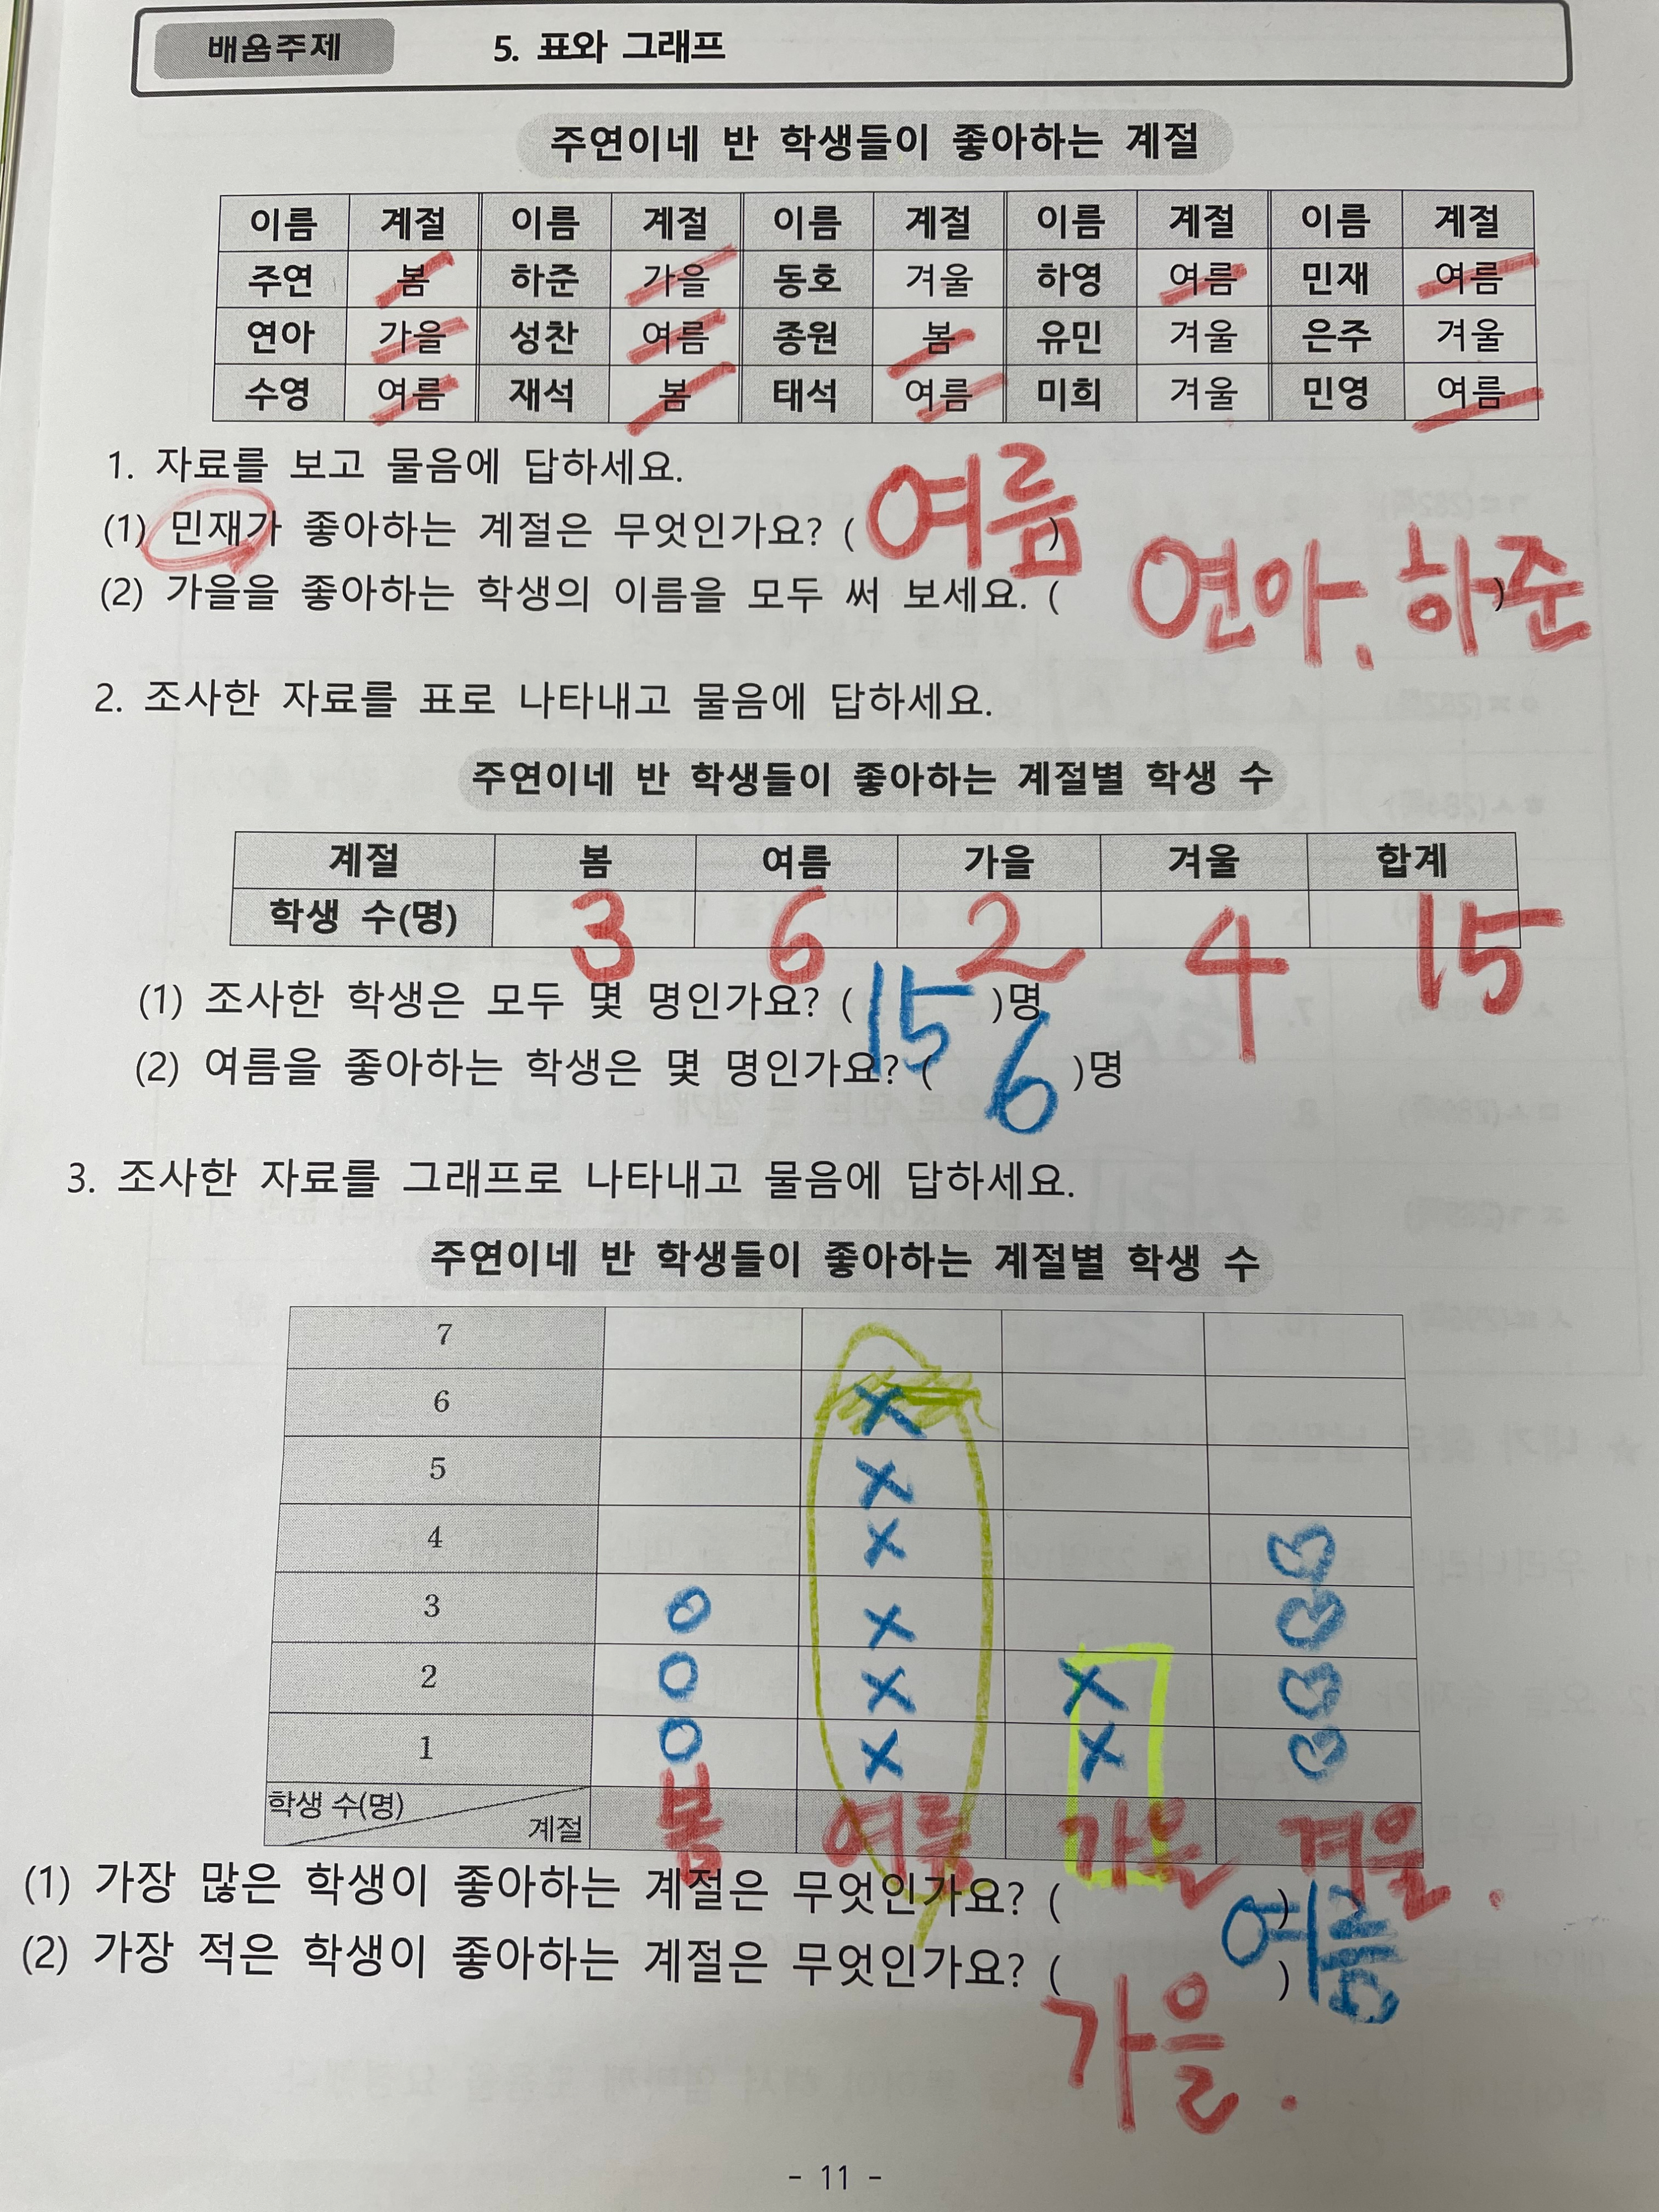 배움주제 5. 표와 그래프
주연이네 반 학생들이 좋아하는 계절
이름 계절 이름 계절 이름 계절 이름 계절 이름 계절
주연 봄 하준 가을 동호 겨울 하영 여름 민재 여름
연아 가을 성찬 여름 종원 봄 유민 겨울 은주 겨울
수영 여름 재석 봄 태석 여름 미희 겨울 민영 여름
1. 자료를 보고 물음에 답하세요.
(1) 민재가 좋아하는 계절은 무엇인가요? ( 여름 )
(2) 가을을 좋아하는 학생의 이름을 모두 써 보세요. ( 연아, 하준 )
2. 조사한 자료를 표로 나타내고 물음에 답하세요.
주연이네 반 학생들이 좋아하는 계절별 학생 수
계절 봄 여름 가을 겨울 합계
학생 수(명) 3 6 2 4 15
(1) 조사한 학생은 모두 몇 명인가요? ( 15 )명
(2) 여름을 좋아하는 학생은 몇 명인가요? ( 6 )명
3. 조사한 자료를 그래프로 나타내고 물음에 답하세요.
주연이네 반 학생들이 좋아하는 계절별 학생 수
7
6 X
5 X
4 X O
3 O X O
2 O X X O
1 O X X O
학생 수(명) 계절 봄 여름 가을 겨울.
(1) 가장 많은 학생이 좋아하는 계절은 무엇인가요? ( ) 여름
(2) 가장 적은 학생이 좋아하는 계절은 무엇인가요? ( )
가을.
- 11 -